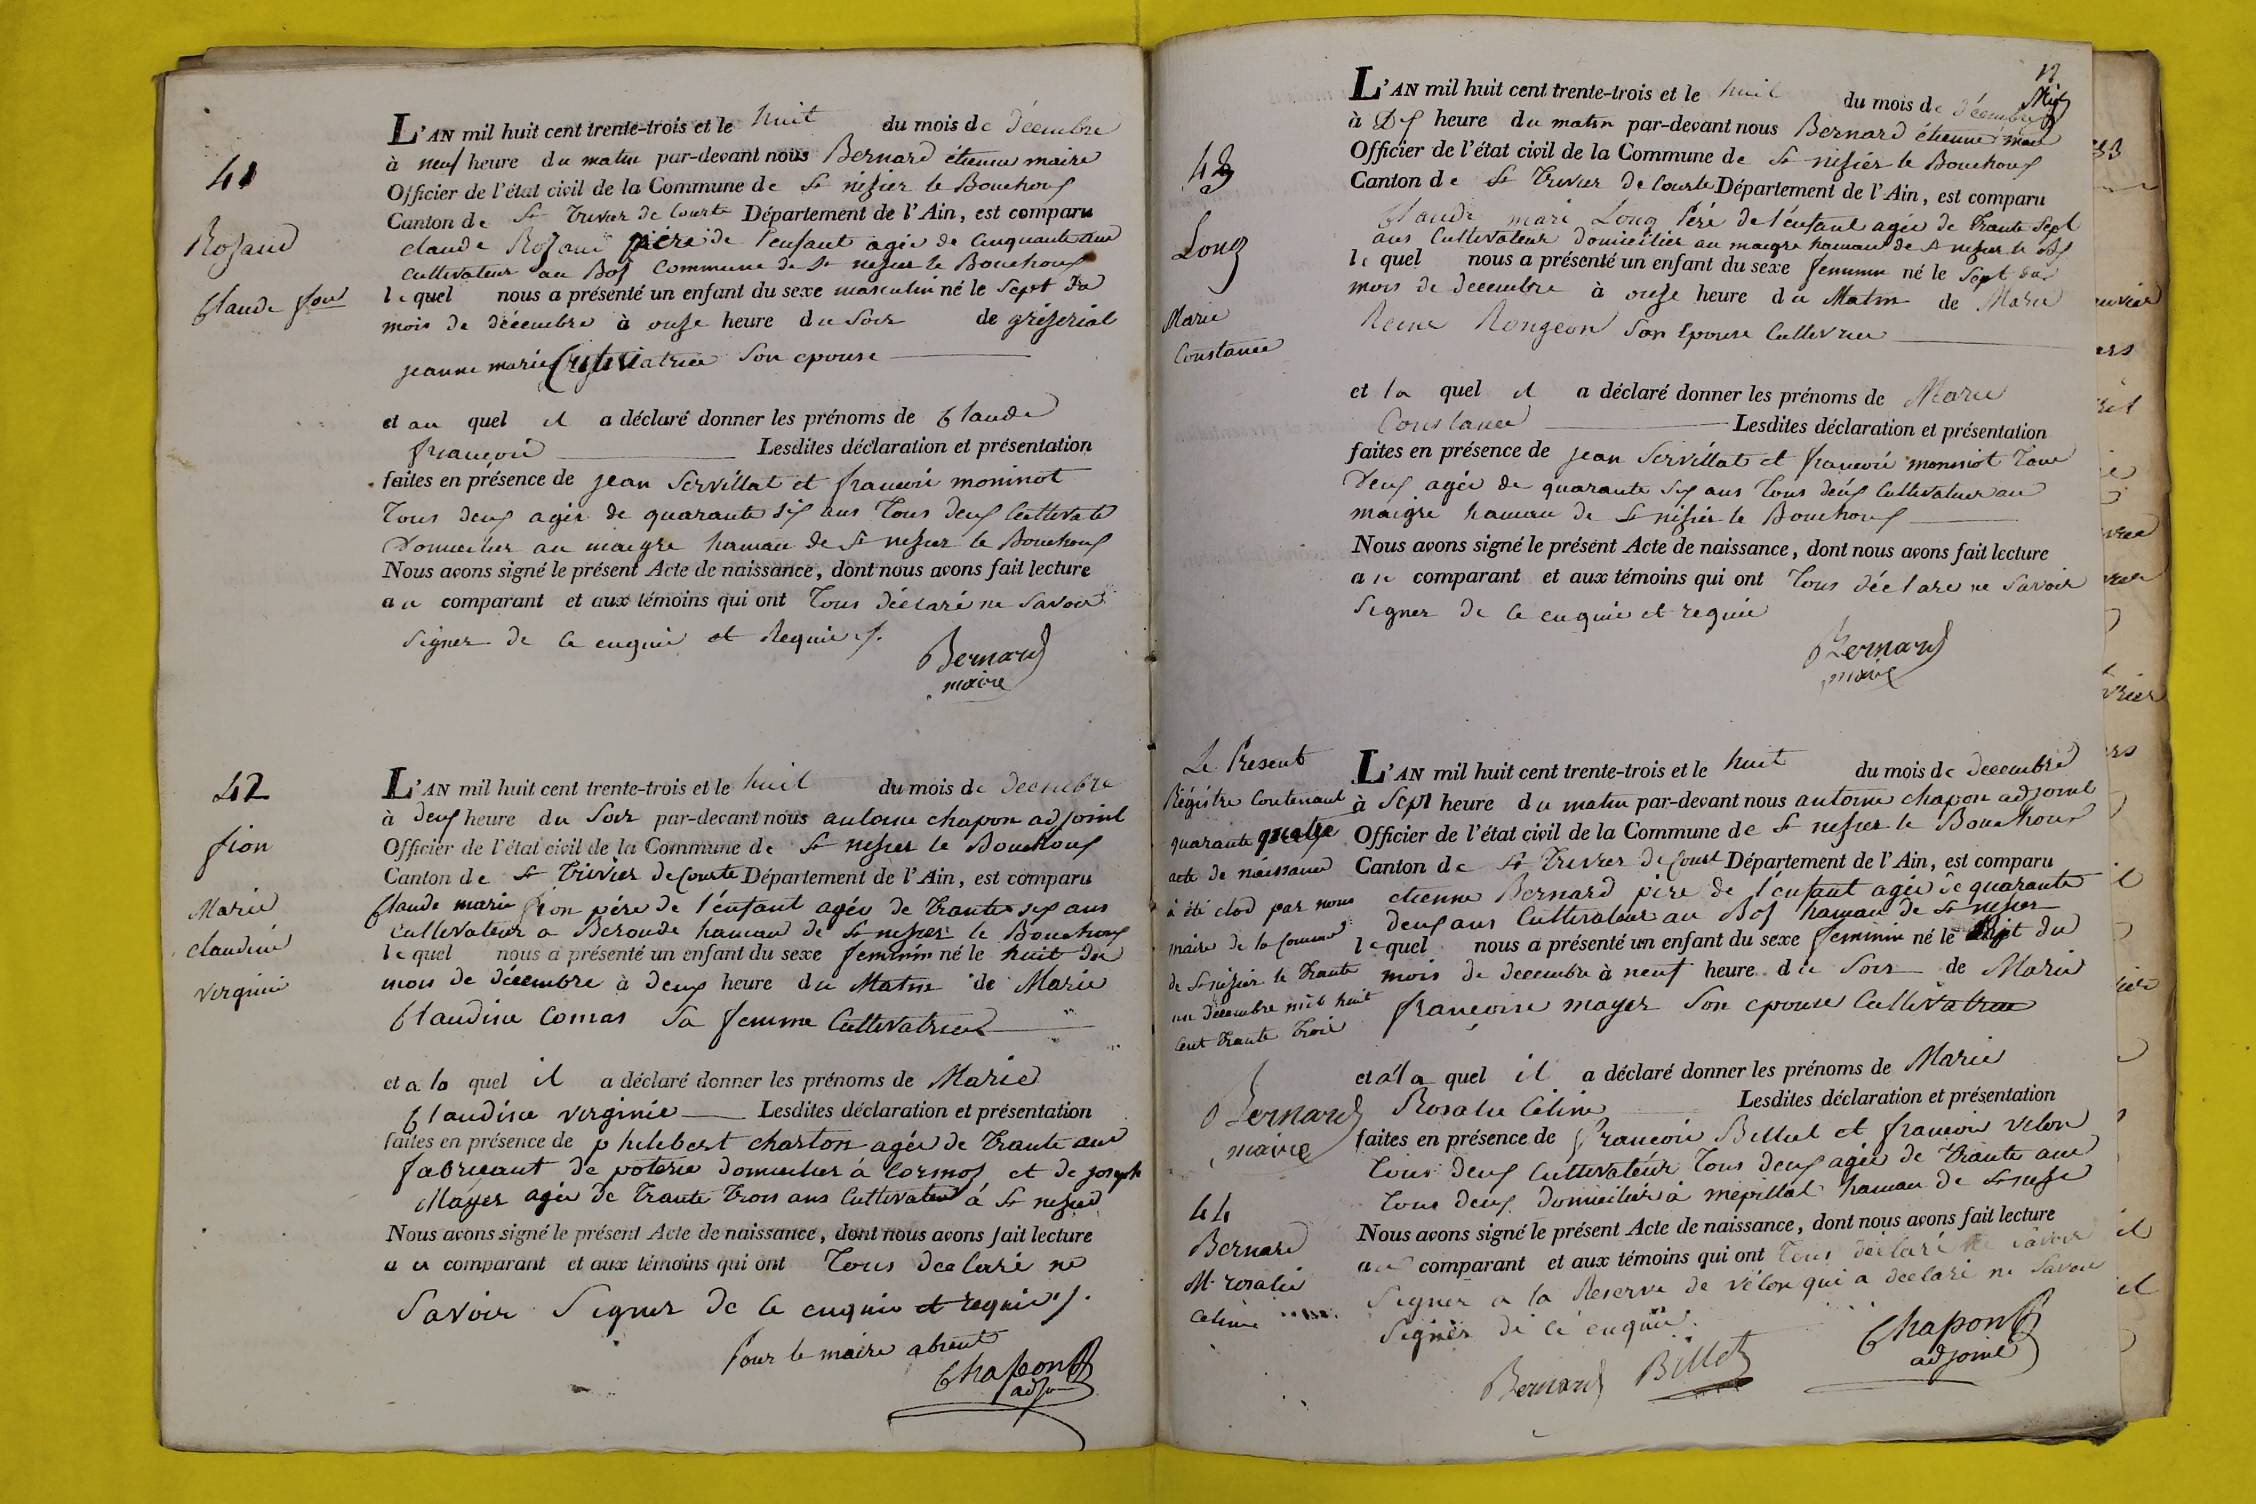 41
Rozand
Claude fois
L'AN mil huit cent trente-trois et le huit du mois de décembre
à neuf heure du matin par-devant nous Bernard étienne maire
Officier de l'état civil de la Commune de St nisier le Bouchoux
Canton de St Trivier de Courte Département de l'Ain, est comparu
claude Rozand père de l'enfant agée de Cinquante ans
cultivateur au Bos Commune de St nisier le Bouchoux
lequel nous a présenté un enfant du sexe masculin né le sept du
mois de décembre à onze heure du Soir de griserial
jeanne marie Cultivatrice Son epouse
et au quel il a déclaré donner les prénoms de Claude
françois Lesdites déclaration et présentation
faites en présence de jean Servillat et françois moninot
Tous deux agée de quarante six ans Tous deux Cultivate
Domicilier au maigre hamau de St nisier le Bouchoux
Nous avons signé le présent Acte de naissance, dont nous avons fait lecture
au comparant et aux témoins qui ont Tous déclaré ne Savoir
signer de ce enquie et Requie ./.
Bernard
maire
42
fion
Marie
claudine
virginie
L'AN mil huit cent trente-trois et le huit du mois de decembre
à deux heure du Soir par-devant nous antoine chapon adjoint
Officier de l'état civil de la Commune de St nisier le Bouchoux
Canton de St Trivier de Courte Département de l'Ain, est comparu
Claude marie fion père de l'enfant agée de Trante six ans
cultivateur a Beronde hamau de St nisier le Bouchoux
lequel nous a présenté un enfant du sexe feminin né le huit du
mois de décembre à deux heure du Matin de Marie
Claudine Comas Sa femme Cultivatrice
et a la quel il a déclaré donner les prénoms de Marie
Claudine virginie Lesdites déclaration et présentation
faites en présence de philebert charton agée de Trante ans
fabricant de poterie domicilier à Cormoz et de joseph
Mayer agée de Trante Trois ans Cultivateur à St nisier
Nous avons signé le présent Acte de naissance, dont nous avons fait lecture
au comparant et aux témoins qui ont Tous declaré ne
Savoir Signer de ce enquie et requie ./.
Pour le maire absent
Chapon
adjoint
12
43
Long
Marie
Constance
L'AN mil huit cent trente-trois et le huit du mois de décembre
à Dix heure du matin par-devant nous Bernard étienne maire
Officier de l'état civil de la Commune de St nisier le Bouchoux
Canton de St Trivier de Courte Département de l'Ain, est comparu
Claude marie Long Père de l'enfant agée de Trante Sept
ans Cultivateur domicilier au maigre hamau de St nisier le
lequel nous a présenté un enfant du sexe feminin né le Sept du
mois de decembre à onze heure du Matin de Marie
Reine Rongeon Son Epouse Cultivrice
et la quel il a déclaré donner les prénoms de Marie
Constance Lesdites déclaration et présentation
faites en présence de jean Servillat et françois moninot Tous
Deux agée de quarante six ans Tous deux Cultivateur au
maigre hamau de St nisier le Bouchoux
Nous avons signé le présent Acte de naissance, dont nous avons fait lecture
au comparant et aux témoins qui ont Tous déclare ne Savoir
Signer de ce enquie et requie
Bernard
maire
Le Present
Régistre Contenant
quarante quatre
acte de naissance
à été clod par nous
maire de la Commune
de St nisier le Trante
un decembre mil huit
Cent Trante Trois
Bernard
maire
44
Bernard
M. rosalie
Celine
L'AN mil huit cent trente-trois et le huit du mois de decembre
à Sept heure du matin par-devant nous antoine chapon adjoint
Officier de l'état civil de la Commune de St nisier le Bouchoux
Canton de St Trivier de Court Département de l'Ain, est comparu
etienne Bernard père de l'enfant agée de quarante
deux ans Cultivateur au Bos hamau de St nisier
lequel nous a présenté un enfant du sexe feminin né le Sept du
mois de decembre à neuf heure du Soir de Marie
françoise mayer Son epouse Cultivatrice
et a la quel il a déclaré donner les prénoms de Marie
Rosalie Céline Lesdites déclaration et présentation
faites en présence de françois Billiet et françois velon
Tous deux Cultivateur Tous deux agée de Trante ans
Tous deux domicilier à mépillat hamau de St nisier
Nous avons signé le présent Acte de naissance, dont nous avons fait lecture
au comparant et aux témoins qui ont Tous déclaré savoir
Signer a la Reserve de vélon qui a declaré ne Savoir
Signer de ce enquie.
Bernard Billet Chapon
adjoint